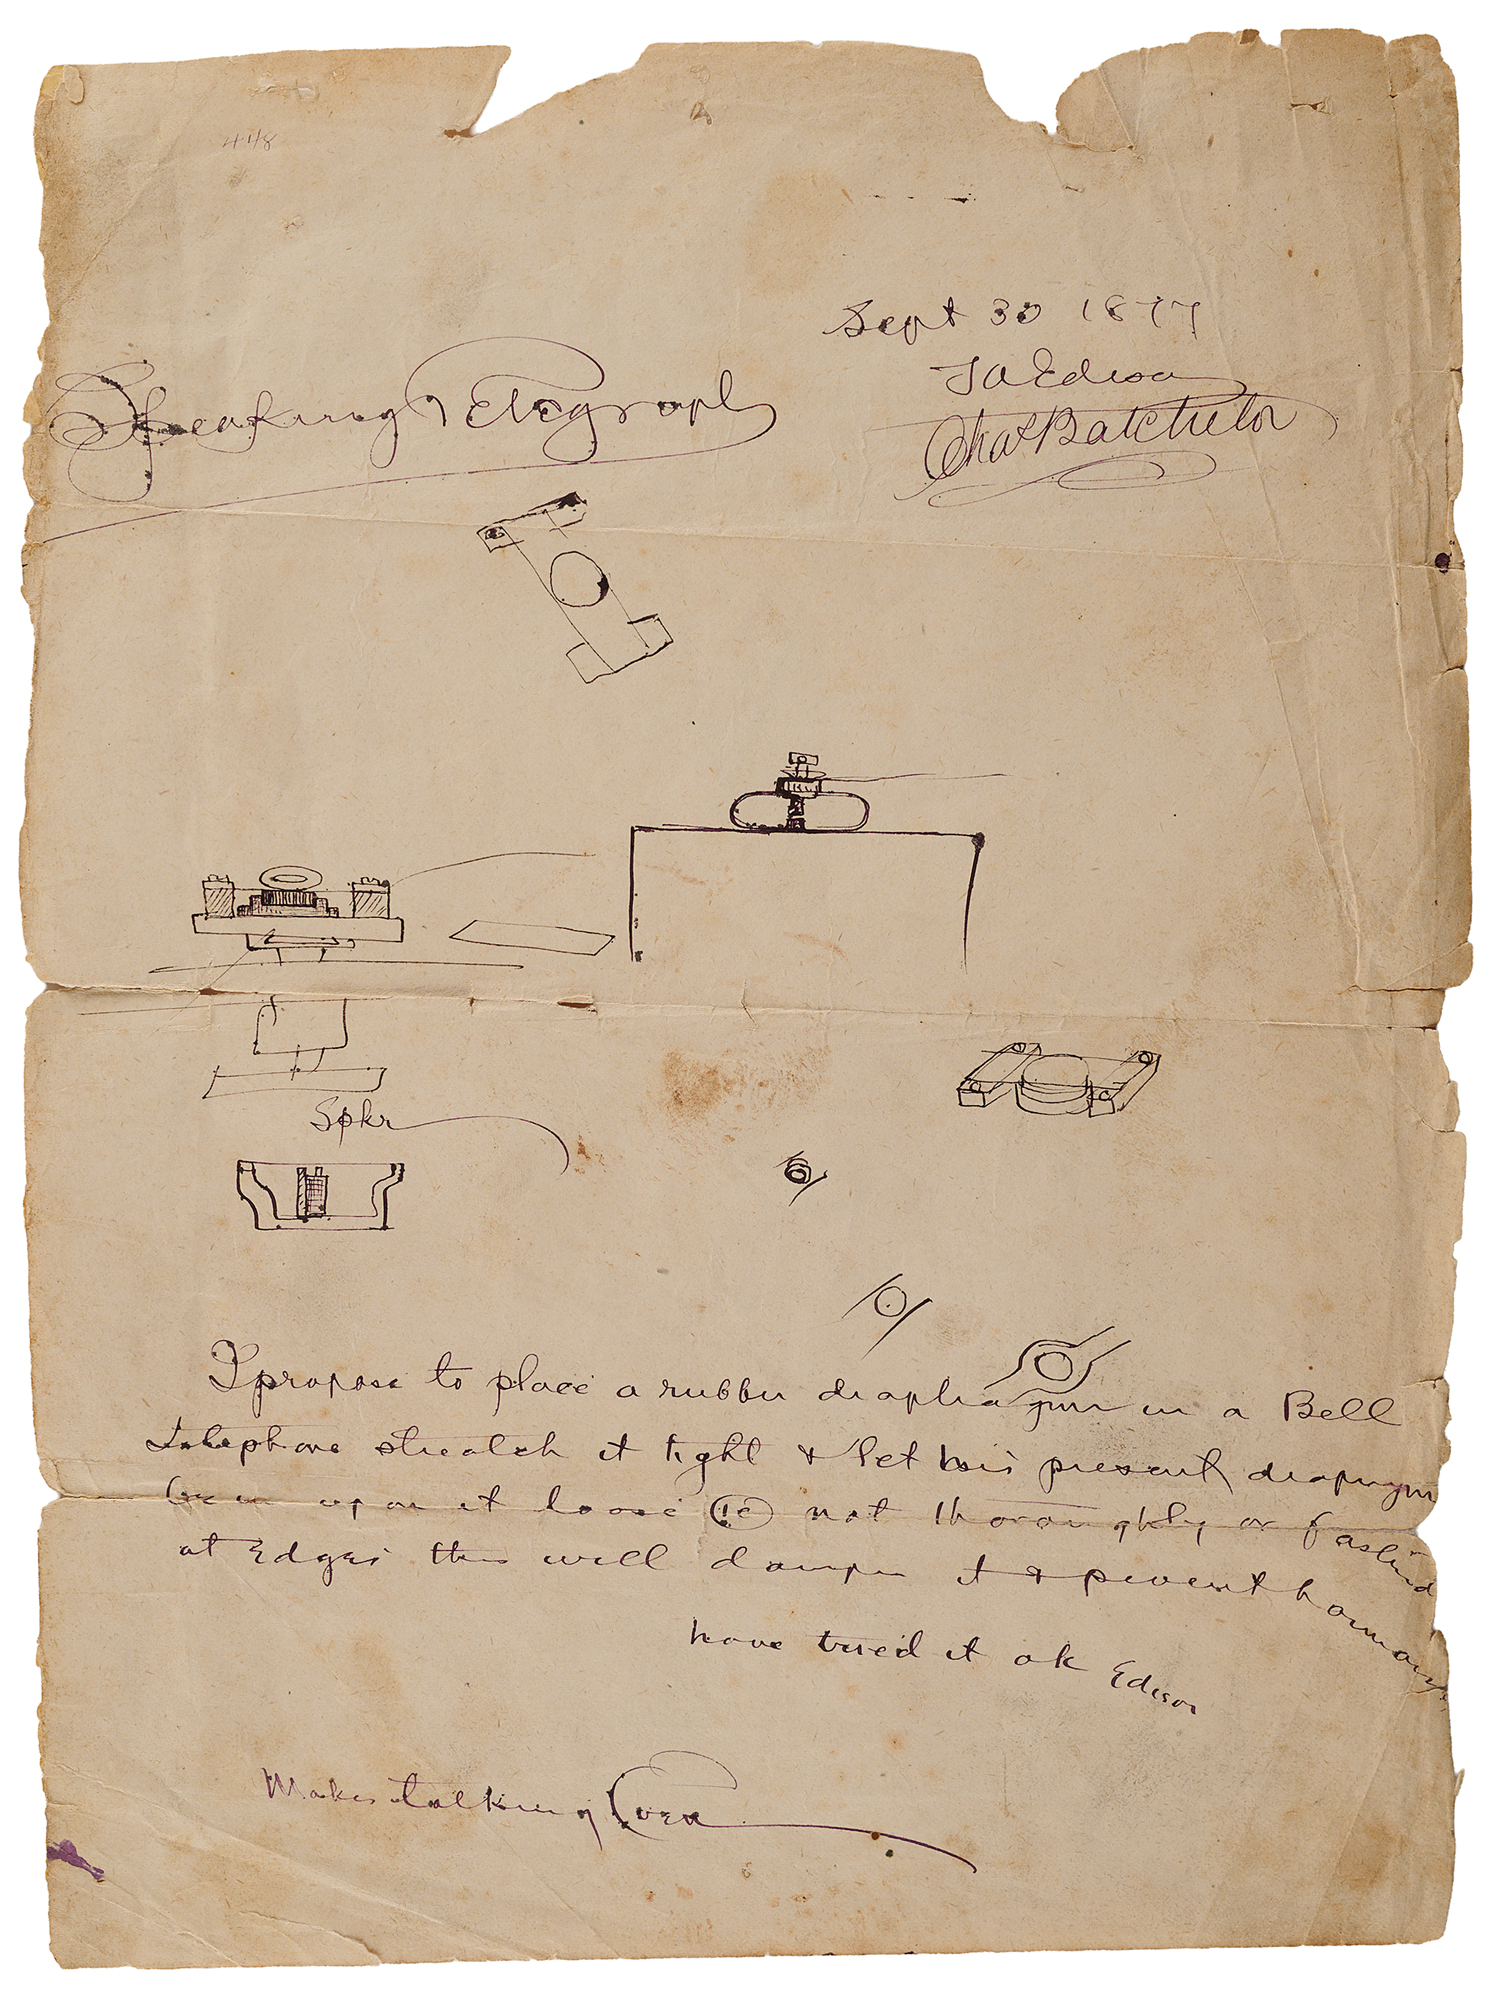 4118
Sept 30 1877
T A Edison
Chas Batchelor
Speaking Telegraph
Spkr
I propose to place a rubber diaphragm in a Bell
Telephone streatch it tight & let his present diaphragm
upon it loose ie not thoroughly or fastend
at Edges this will dampn it & prevent harmonics
have tried it ok Edison
Makes talking Even